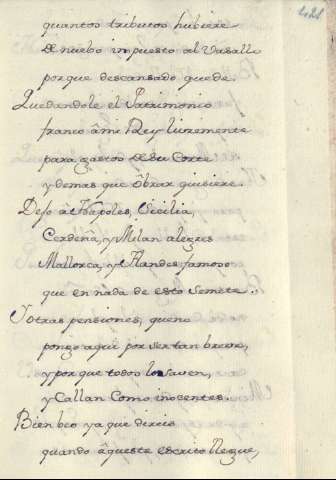 421
quantos tributos hubiere
de nuebo impuesto al Vasallo
porque descansado quede.
Quedandole el Patrimonio
franco â mi Rey livremente
para gastos de su Corte
y demas que ôbrar quisiere.
Dejo â Napoles, Cecilia,
Cerdeña, y Milan alegres
Mallorca, y Flandes famoso
que en nada de esto se mete.
Y otras pensiones, que no
pongo aqui por ser tan breve,
y porque todos lo saven,
y Callan Como inocentes.
Bien beo ya que diran
quando âqueste escrito llegue,